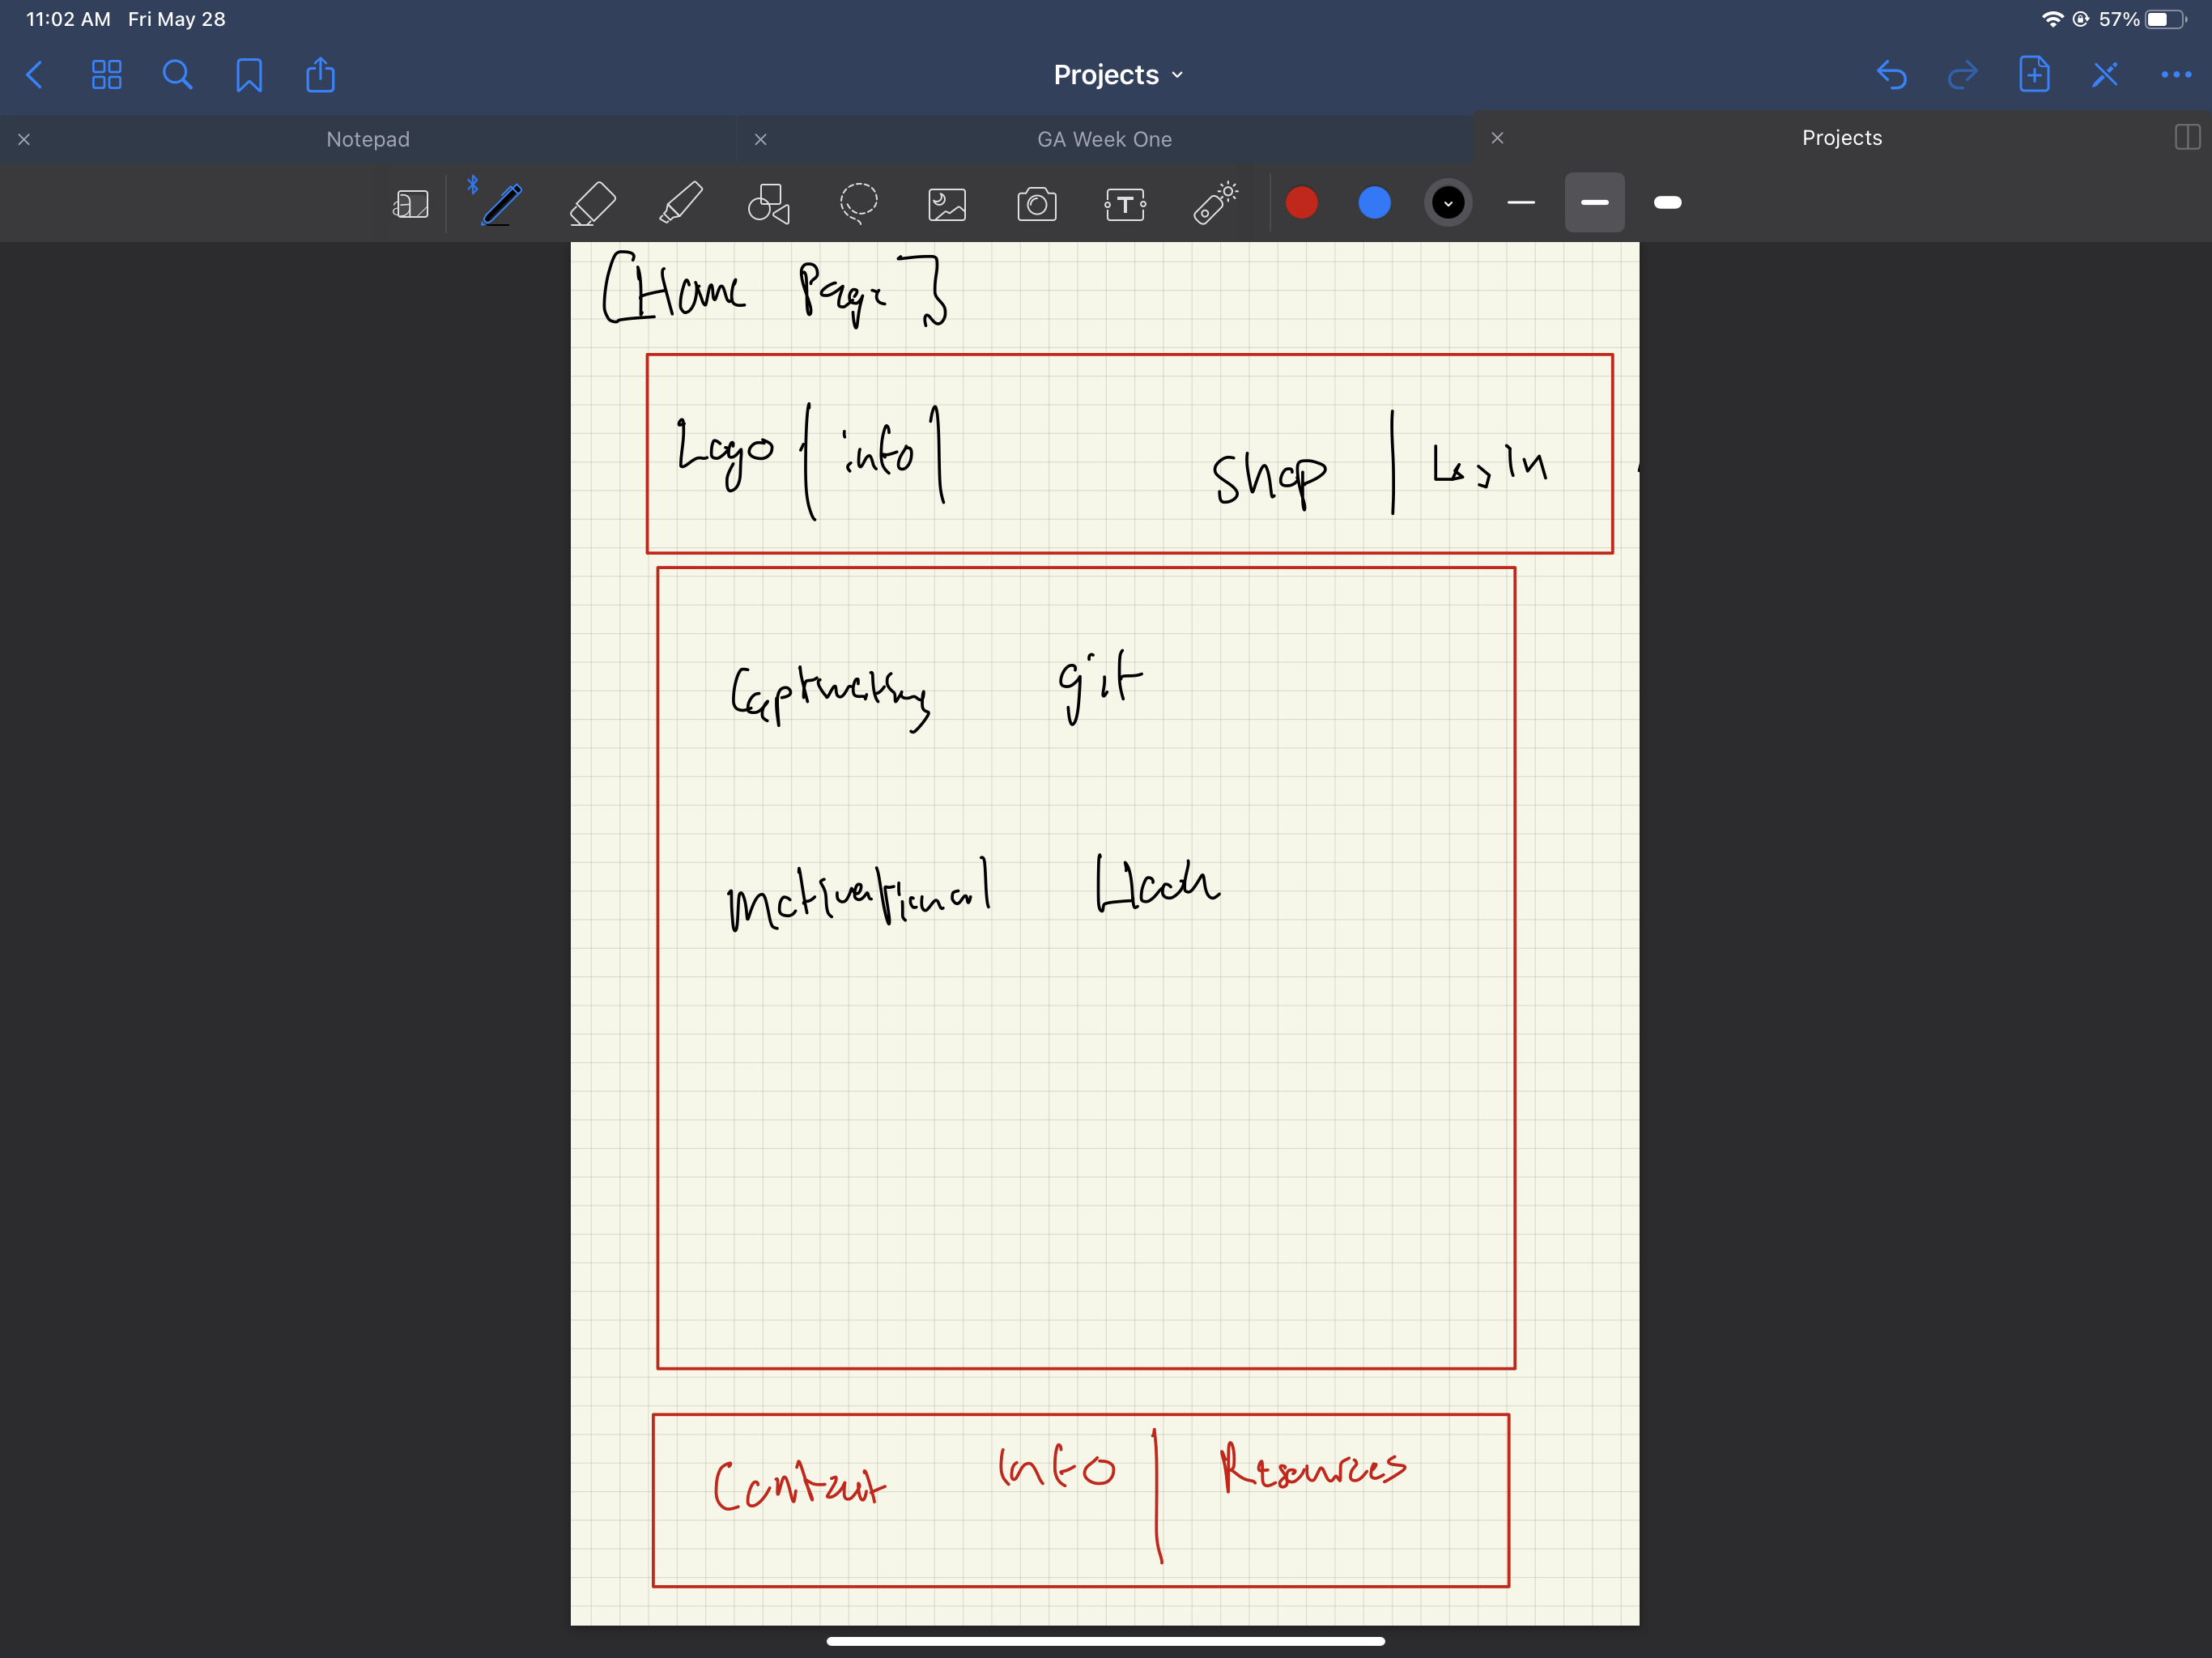 11:02 AM Fri May 28 57%
Projects
Notepad GA Week One Projects
[Home Page]
Logo | info | Shop | Login
git
motivational
Contact Info | Resources